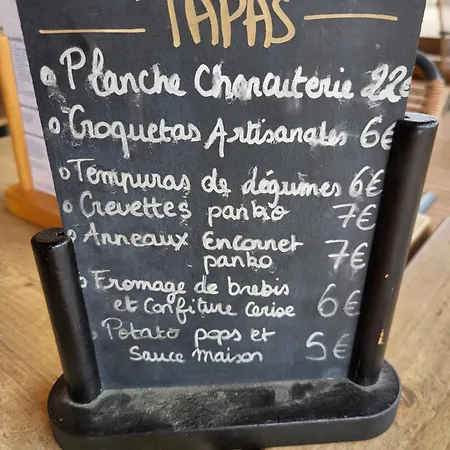 TAPAS
Planche Charcuterie 22€
Croquetas Artisanales 6€
Tempuras de légumes 6€
Crevettes panko 7€
Anneaux Encornet
panko 7€
Fromage de brebis
et confiture cerise 6€
Potato pops et
sauce maison 5€